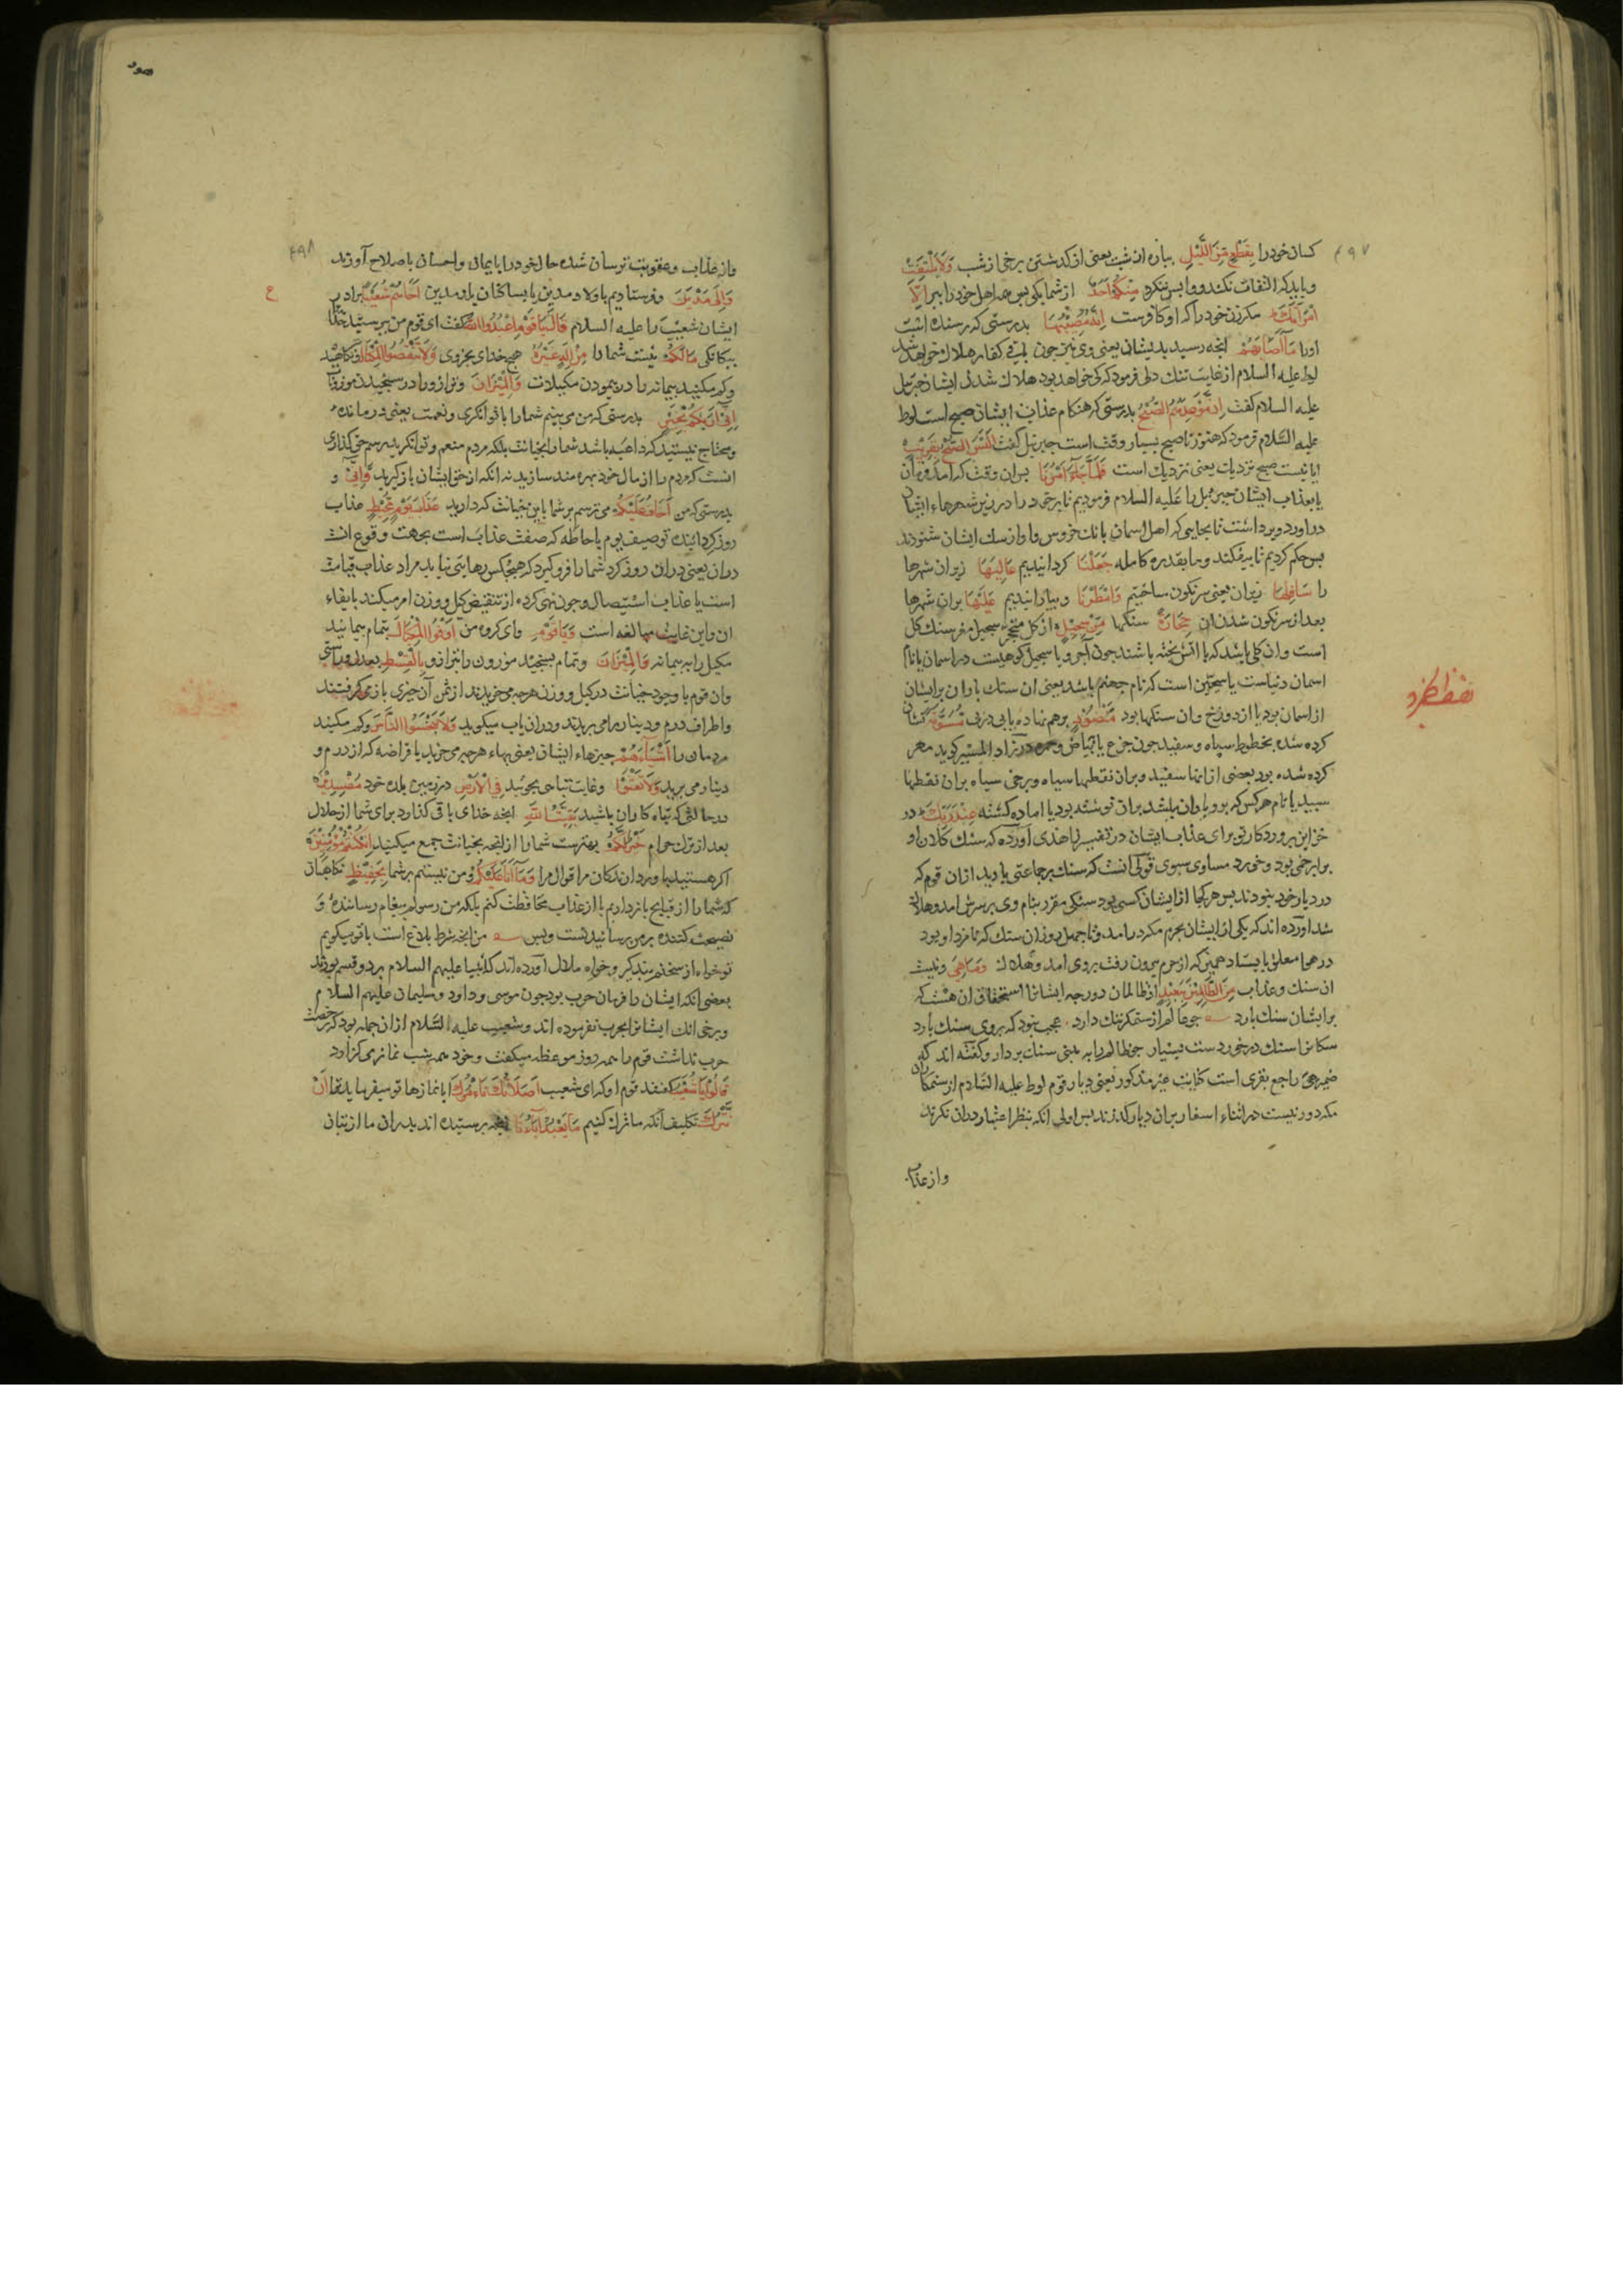 ۴۹۷
کسان خود را بِقِطْعٍ مِنَ اللَّیْلِ بپاره از شب یعنی از کدشتن برخی از شب وَلَا یَلْتَفِتْ
و باید که التفات نکند و وابس ننکرد مِنْکُمْ اَحَدٌ از شما یکی بس همه اهل خود را ببر اِلَّا
امْرَاَتَکَ مکر زن خود را که او کافرست اِنَّهُ مُصِیْبُهَا بدرستی که رسنده است
اورا مَا اَصَابَهُمْ انجه رسید بدیشان یعنی وی نیز جون کفار هلاک خواهد شد
لوط علیه السلام از غایت تنک دلی فرمود که کی خواهد بود هلاک شدن ایشان جبرئیل
علیه السلام کفت اِنَّ مَوْعِدَهُمُ الصُّبْحُ بدرستی که هنکام عذاب ایشان صبح است لوط
علیه السّلام فرمود که هنوز تا صبح بسیار وقت است جبرئیل کفت اَلَیْسَ الصُّبْحُ بِقَرِیْبٍ
ایا نیست صبح نزدیک یعنی نزدیک است فَلَمَّا جَاءَ اَمْرُنَا بس ان وقت که امد فرمان
یا بعذاب ایشان جبرئیل را علیه السلام فرمودیم تا بر خود را در زیر شهرهاء ایشان
دراورد و برداشت تا بجایی که اهل اسمان بانک خروس و اواز سک ایشان شنودند
بس حکم کردیم تا بیفکند و ما بقدره کامله جَعَلْنَا کردانیدیم عَالِیَهَا زبر ان شهرها
را سَافِلَهَا زیر ان یعنی سرنکون ساختیم وَاَمْطَرْنَا و ببارانیدیم عَلَیْهَا بران شهرها
بعد از سرنکون شدن ان حِجَارَةً سنکها مِنْ سِجِّیْلٍ از کل متحجر سجیل معرب سنک کل
است و ان کلی باشد که با اتش بخته باشند جون آجر و یا سجیل کوهیست در اسمان یا نام
اسمان دنیاست یا سجّین است که نام جهنم باشد یعنی ان سنک باران بر ایشان
از اسمان بود یا از دوزخ و ان سنکها بود مَنْضُوْدٍ برهم نهاده یا بی در پی مُسَوَّمَةً نشان
کرده شده بخطوط سیاه و سفید جون جزع یا بیاض و حمره در زاد المسیر کوید مهر
کرده شده بود بعضی از انها سفید و بران نقطها سیاه و برخی سیاه بران نقطها
سبید یا نام هرکس که برو باران باشد بران نوشته بود یا اماده کشته عِنْدَ رَبِّکَ در
خزاین بروردکار تو برای عذاب ایشان در تفسیر زاهدی آورده که سنک کلان او
برابر خمی بود و خورد مساوی سبوی قولی انست که سنک بر جماعتی بارید ازان قوم که
در دیار خود نبودند بس هرکجا از ایشان کسی بود سنکی مقرر بنام وی بر سرش امد و هلاک
شد اورده اند که یکی از ایشان بحرم مکه درامد و تا جهل روز ان سنک که نامزد او بود
در هوا معلق بایستاد همین که از حرم بیرون رفت بر وی امد و هلاک وَمَا هِیَ و نیست
ان سنک و عذاب مِنَ الظَّالِمِیْنَ بِبَعِیْدٍ از ظالمان دور جه ایشانرا استحقاق ان هست که
بر ایشان سنک بارد جو عالم از ستمکر ننک دارد عجب نبود که بر وی سنک بارد
سکانرا سنک در خورد ست بسیار جو ظالم را به بینی سنک بردار و کفته اند که
ضمیر هی راجع بقری است کنایت غیر مذکور یعنی دیار قوم لوط علیه السّلام از ستمکاران
مکه دور نیست در اثناء اسفار بران دیار کذرند بس اولی انکه بنظر اعتبار دران نکرند
واز عذاب
هود
۴۹۸
واز عذاب و عقوبت ترسان شده حال خود را بایمان و احسان باصلاح آورند
وَاِلٰی مَدْیَنَ و فرستادیم باولاد مدین یا بساکنان باو مدین اَخَاهُمْ شُعَیْبًا برادر
ایشان شعیب را علیه السلام قَالَ یَا قَوْمِ اعْبُدُوا اللّٰهَ کفت ای قوم من ببرستید خدا
بیکانکی مَا لَکُمْ نیست شما را مِنْ اِلٰهٍ غَیْرُهُ هیج خدای بجز وی وَلَا تَنْقُصُوا الْمِکْیَالَ و نکاهید
و کم مکنید بیمانه را در بیمودن مکیلات وَالْمِیْزَانَ و ترازو را در سنجیدن موزونات
اِنِّیْ اَرٰیکُمْ بِخَیْرٍ بدرستی که من می بینم شما را با توانکری و نعمت یعنی درمانده
و محتاج نیستید که داعیه باشد شما را بخیانت بلکه مردم منعم و توانکرید رسم حق کذاری
انست که مردم را از مال خود بهره مند سازید نه انکه از حق ایشان باز کیرید وَاِنِّیْ و
بدرستی که من اَخَافُ عَلَیْکُمْ می ترسم بر شما باین خیانت که دارید عَذَابَ یَوْمٍ مُحِیْطٍ عذاب
روز کرداننده توصیف یوم باحاطه که صفت عذاب است بجهت وقوع انست
دران یعنی دران روز کرد شما را فرو کیرد که هیجکس رهایی نیابد مراد عذاب قیامت
است یا عذاب استیصال و جون نهی کرده از تنقیض کیل و وزن امر میکند بایفاء
ان و این غایت مبالغه است وَیَا قَوْمِ و ای کروه من اَوْفُوا الْمِکْیَالَ بتمام بیمانید
مکیل را به بیمانه وَالْمِیْزَانَ و تمام بسنجید موزون را بترازو بِالْقِسْطِ بعدل و راستی
وان قوم با وجود خیانت در کیل و وزن هرجه می خریدند از ثمن آن جیزی باز می کرفتند
و اطراف درم و دینار را می بریدند و دران باب میکوید وَلَا تَبْخَسُوا النَّاسَ و کم مکنید
مردمان را اَشْیَاءَهُمْ جیزهاء ایشان یعنی بهاء هرجه می خرید یا قراضه که از درم و
دینار می برید وَلَا تَعْثَوْا و غایت تباهی مجوئید فِی الْاَرْضِ در زمین بلده خود مُفْسِدِیْنَ
درحالتی که تباه کاران باشید بَقِیَّتُ اللّٰهِ انجه خدای باقی کذارد برای شما از حلال
بعد از ترک حرام خَیْرٌ لَکُمْ بهترست شما را از انجه بخیانت جمع میکنید اِنْ کُنْتُمْ مُؤْمِنِیْنَ
اکر هستید باوردارندکان مر اقوال مرا وَمَا اَنَا عَلَیْکُمْ و من نیستم بر شما بِحَفِیْظٍ نکاهبان
که شما را از قبایح بازداریم یا از عذاب محافظت کنم بلکه من رسولم بیغام رساننده و
نصیحت کننده بر من رسانیدنست و بس من انجه شرط بلاغ است با تو میکویم
تو خواه از سخنم بند کیر و خواه ملال آورده اند که انبیا علیهم السلام بر دو قسم بودند
بعضی انکه ایشان را فرمان حرب بود جون موسی و داود و سلیمان علیهم السلام
و برخی انک ایشانرا بحرب نفرموده اند و شعیب علیه السّلام ازان جمله بود که رخصت
حرب نداشت قوم را همه روز موعظه میکفت و خود همه شب نماز می کزارد
قَالُوْا یَا شُعَیْبُ کفتند قوم او که ای شعیب اَصَلٰوتُکَ تَاْمُرُکَ ایا نمازها تو میفرماید ترا اَنْ
نَتْرُکَ تکلیف آنکه ما ترک کنیم مَا یَعْبُدُ اٰبَاءُنَا انجه برستیده اند بدران ما از بتان